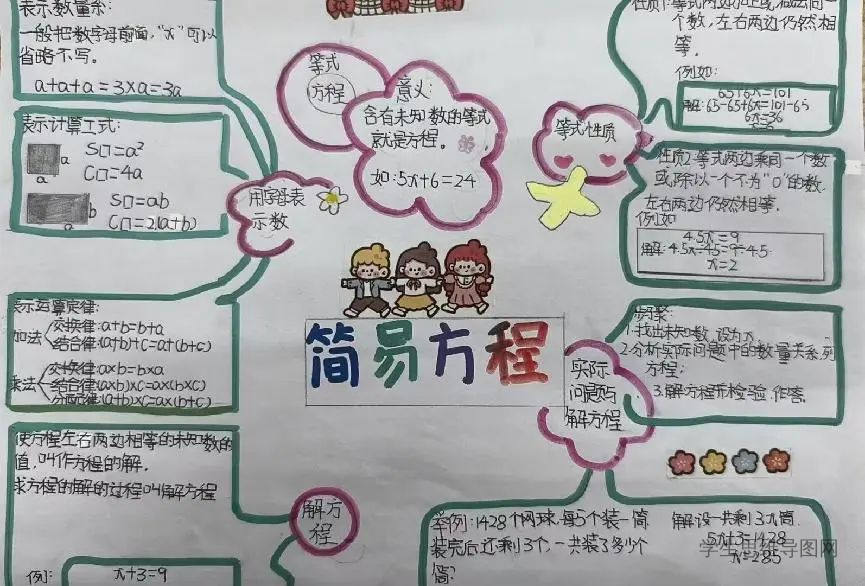 表示数量余:
一般把数字母前面,"x"可以
省略不写。
a+a+a=3×a=3a
表示计算工式:
a
a
S□=a²
C□=4a
b
a
S□=ab
C□=2(a+b)
用字母表
示数
表示运算定律:
加法
交换律:a+b=b+a
结合律:(a+b)+c=a+(b+c)
乘法
交换律:a×b=b×a
结合律:(a×b)×c=a×(b×c)
分配律:(a+b)×c=a×(b+c)
使方程左右两边相等的未知数的
值,叫作方程的解。
求方程的解的过程叫解方程
例:
x+3=9
解方
程
等式
方程
意义:
含有未知数的等式
就是方程。
如:5x+6=24
简易方程
等式性质
个数,左右两边仍然相
等。
例如:
65+6x=101
解:65-65+6x=101-65
6x=36
性质2:等式两边乘同一个数
或除以一个不为"0"的数,
左右两边仍然相等.
例如
4.5x=9
解:4.5x÷4.5=9÷4.5
x=2
实际
问题与
解方程
1.找出未知数,设为x
2.分析实际问题中的数量关系列
方程;
3.解方程并检验,作答。
举例:1428个网球,每5个装一筒
装完后还剩3个,一共装了多少个
筒?
解:设一共剩3x筒
5x+3=1428
x=285
学生思维导图网